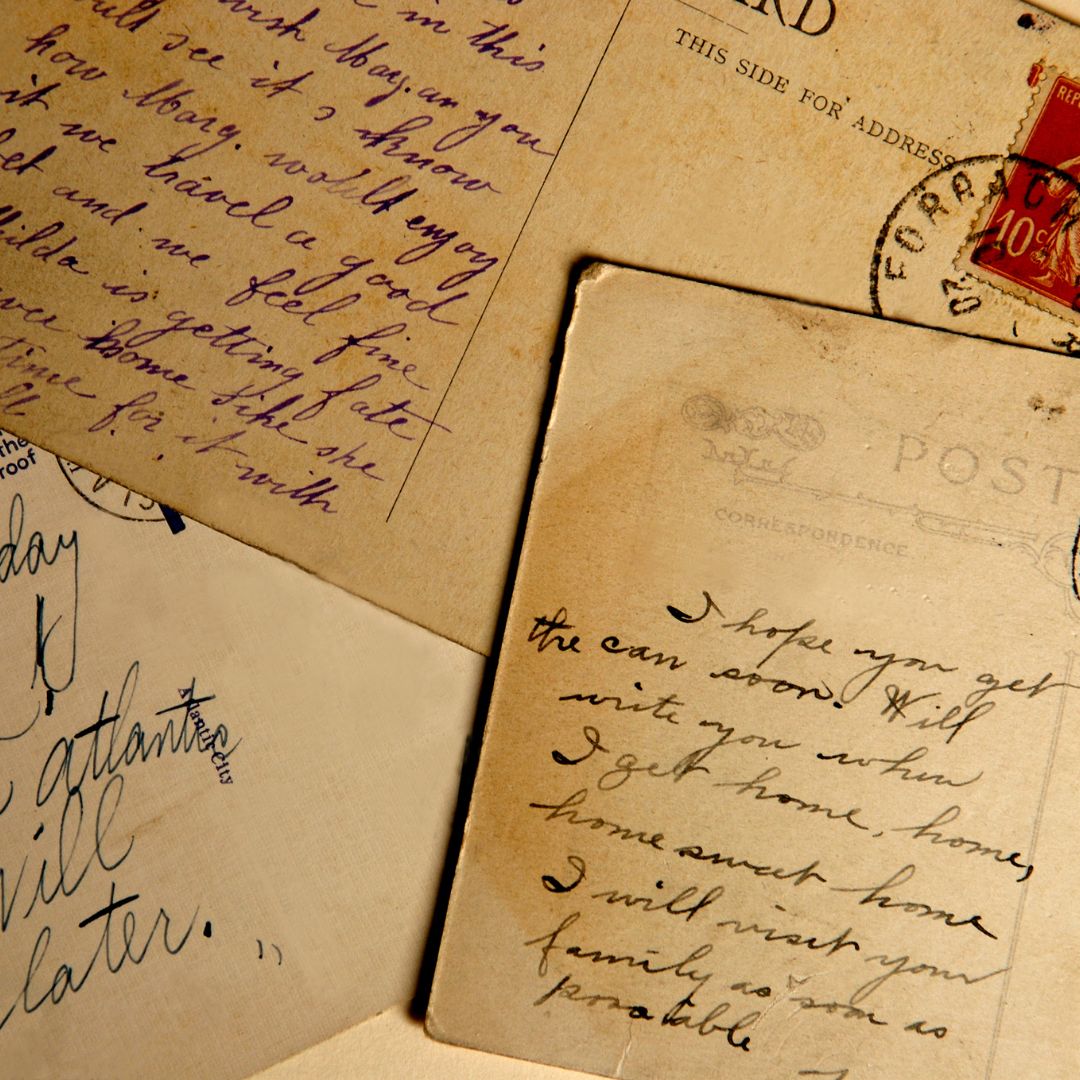 in this
wish Mary an you
will see it & know
how Mary. would enjoy
it we travel a good
and we feel fine
Hilda is getting fate
home like she
time for it with
ARD
THIS SIDE FOR ADDRESS
REP
10c
FORBACH
the
roof
day
atlantic
Atlantic City
Will
later.
POST
CORRESPONDENCE
I hope you get
the can soon. Will
write you when
I get home, home,
home sweat home
I will visit your
family as soon as
posatable